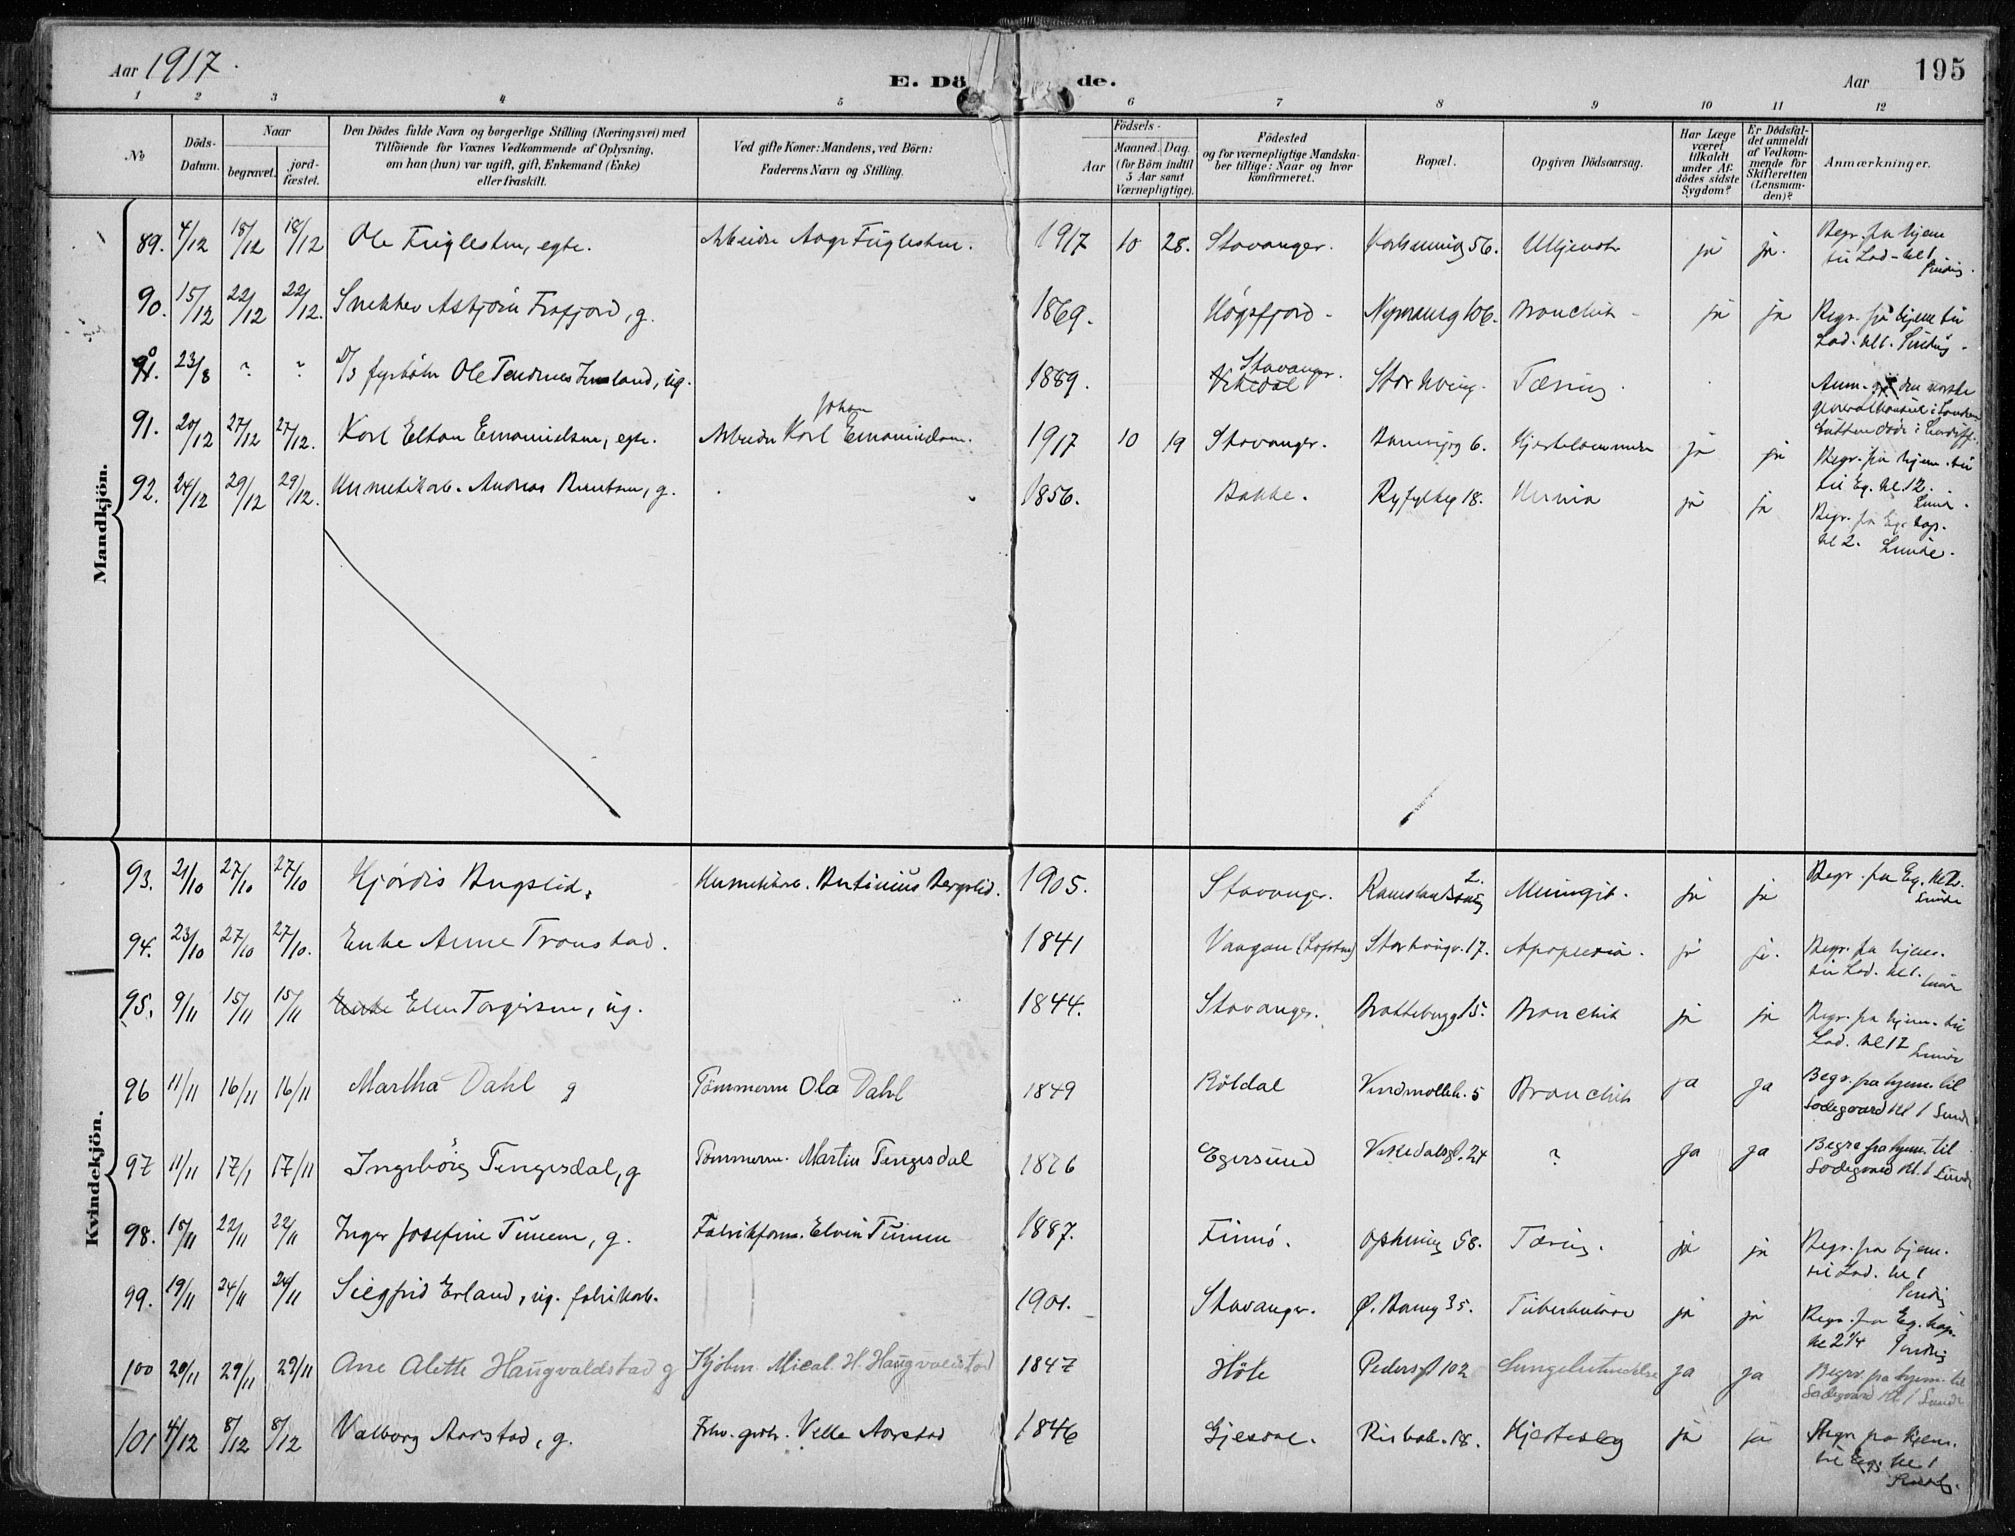 Aar 1917.
E. Dö de.
Aar
195
1 2 3 4 5 6 7 8 9 10 11 12
No
Döds-Datum.
Naar
begravet.
jord-fæstet.
Den Dödes fulde Navn og borgerlige Stilling (Næringsvei) med
Tilföiende for Voxnes Vedkommende af Oplysning,
om han (hun) var ugift, gift, Enkemand (Enke)
eller fraskilt.
Ved gifte Koner: Mandens, ved Börn:
Faderens Navn og Stilling.
Födsels-
Aar
Maaned. Dag.
(for Börn indtil
5 Aar samt
Værnepligtige).
Födested
og for værnepligtige Mandska-
ber tillige: Naar og hvor
konfirmeret.
Bopæl.
Opgiven Dödsaarsag.
Har Læge
været
tilkaldt
under Af-
dödes sidste
Sygdom?
Er Dödsfal-
det anmeldt
af Vedkom-
mende for
Skifteretten
(Lensman-
den)?
Anmærkninger.
Mandkjön.
89. 4/12 18/12 18/12 Ole Fuglesten, egte. Arbeider Aage Fuglesten. 1917 10 28. Stavanger. 56. ja ja. Begr. fra hjem
til Lad- kl 1
90. 15/12 22/12 22/12. Snekker Asbjørn Frafjord, g. 1869. Høgsfjord - Nymansg 106. Bronchit - ja ja Begr. fra hjem til
Lad. kl 1.
23/8 ? ? fyrbøter Ole, ug. 1889. Stavanger. Vikedal Tæring.
91. 20/12 27/12 27/12. Karl Elton Emanuelsen, egte. Arbeider Karl Johan Emanuelsen. 1917 10 19 Stavanger. 6. ja ja Begr. fra hjem. til
til Eg. kl 12.
92. 24/12 29/12 29/12. Hermetikarb. Andreas, g. 1856. Bakke. Ryfylkeg 18. Hernia ja ja Begr. fra Eg. kap.
kl 2. Lunde.
Kvindekjön.
93. 21/10 27/10 27/10 Hjørdis Bergslid. Hermetikarb. Bergslid. 1905. Stavanger. 2. Meningit. ja ja Begr. fra Eg. kl 2.
Lunde
94. 23/10 27/10 27/10. Enke Anne Tronstad. 1841 Vaagan (Lofoten) Storhaugv. 17. Apoplexia. ja ja. Begr. fra hjem.
til Lad. kl 1. Lunde
95. 9/11 15/11 15/11 Enke Elen Torgersen, ug. 1844. Stavanger. Brattebergg 15. Bronchit ja ja Begr. fra hjem. til
Lad. kl 12 Lunde
96 11/11 16/11 16/11 Martha Dahl g Tømmerm Ola Dahl 1849 Röldal Vindmølleb. 5 Bronchit ja ja Begr. fra hjem. til
Ladegaard kl 1 Lunde
97 11/11 17/1 17/11 Ingeborg Tengesdal, g Tömmerm. Martin Tengesdal 1876 Egersund Vikedalsgt. 24 ? ja ja Begra fra hjem. til
Ladegaard kl. 1 Lunde
98. 15/11 22/11 22/11 Inger Josefine Tunem, g. Fabrikform. Elvin Tunem 1887. Finnö. 58. Tæring. ja ja Begr. fra hjem.
til Lad. kl 1
99. 19/11 24/11 24/11 Siegfrid Erland, ug. fabrikarb. 1901. Stavanger. 35. Tuberkulose ja ja Begr. fra Eg. kap.
kl 2 1/4
100 20/11 29/11 29/11 Ane Alette Haugvaldstad g Kjöbm. Mical. H. Haugvaldstad 1847 Höle Pedersgt 102 Lungebetændelse ja ja Begr. fra hjem. til
Ladegaard kl 1 Lunde
101 4/12 8/12 8/12 Valborg Aarstad, g. Velle Aarstad 1846 Gjesdal. Risbak. 18. Hjerteslag ja ja Begr fra hjem.
til Eg. kl 1